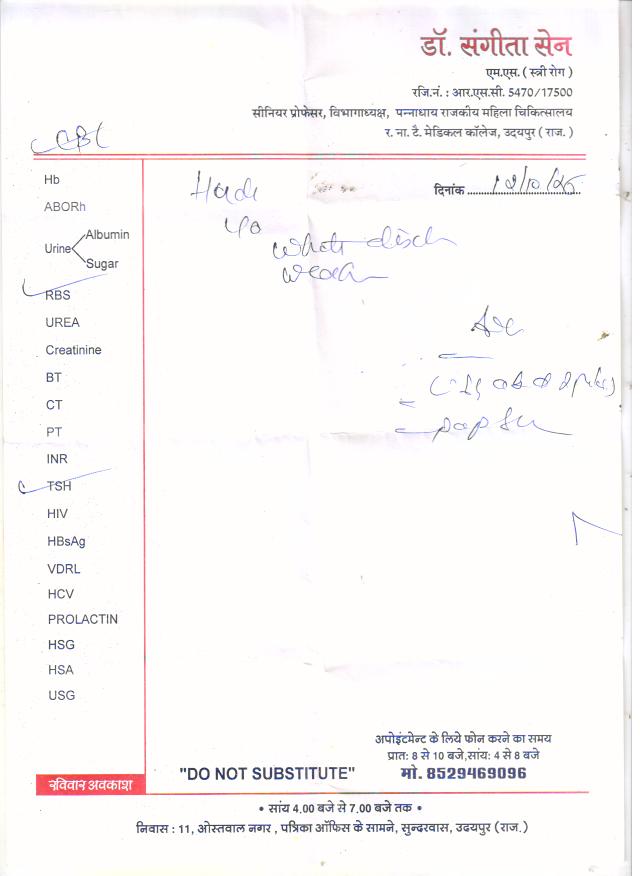 डॉ. संगीता सेन
एम.एस. ( स्त्री रोग )
रजि.नं. : आर.एस.सी. 5470/17500
सीनियर प्रोफेसर, विभागाध्यक्ष, पन्नाधाय राजकीय महिला चिकित्सालय
र. ना. टै. मेडिकल कॉलेज, उदयपुर ( राज. )
CBC
दिनांक
Hb
ABORh
Urine
Albumin
Sugar
RBS
UREA
Creatinine
BT
CT
PT
INR
TSH
HIV
HBsAg
VDRL
HCV
PROLACTIN
HSG
HSA
USG
white disch
weak
Adv
pap
रविवार अवकाश
अपोइंटमेन्ट के लिये फोन करने का समय
प्रात: 8 से 10 बजे,सांय: 4 से 8 बजे
"DO NOT SUBSTITUTE" मो. 8529469096
• सांय 4.00 बजे से 7.00 बजे तक •
निवास : 11, ओस्तवाल नगर , पत्रिका ऑफिस के सामने, सुन्दरवास, उदयपुर (राज.)